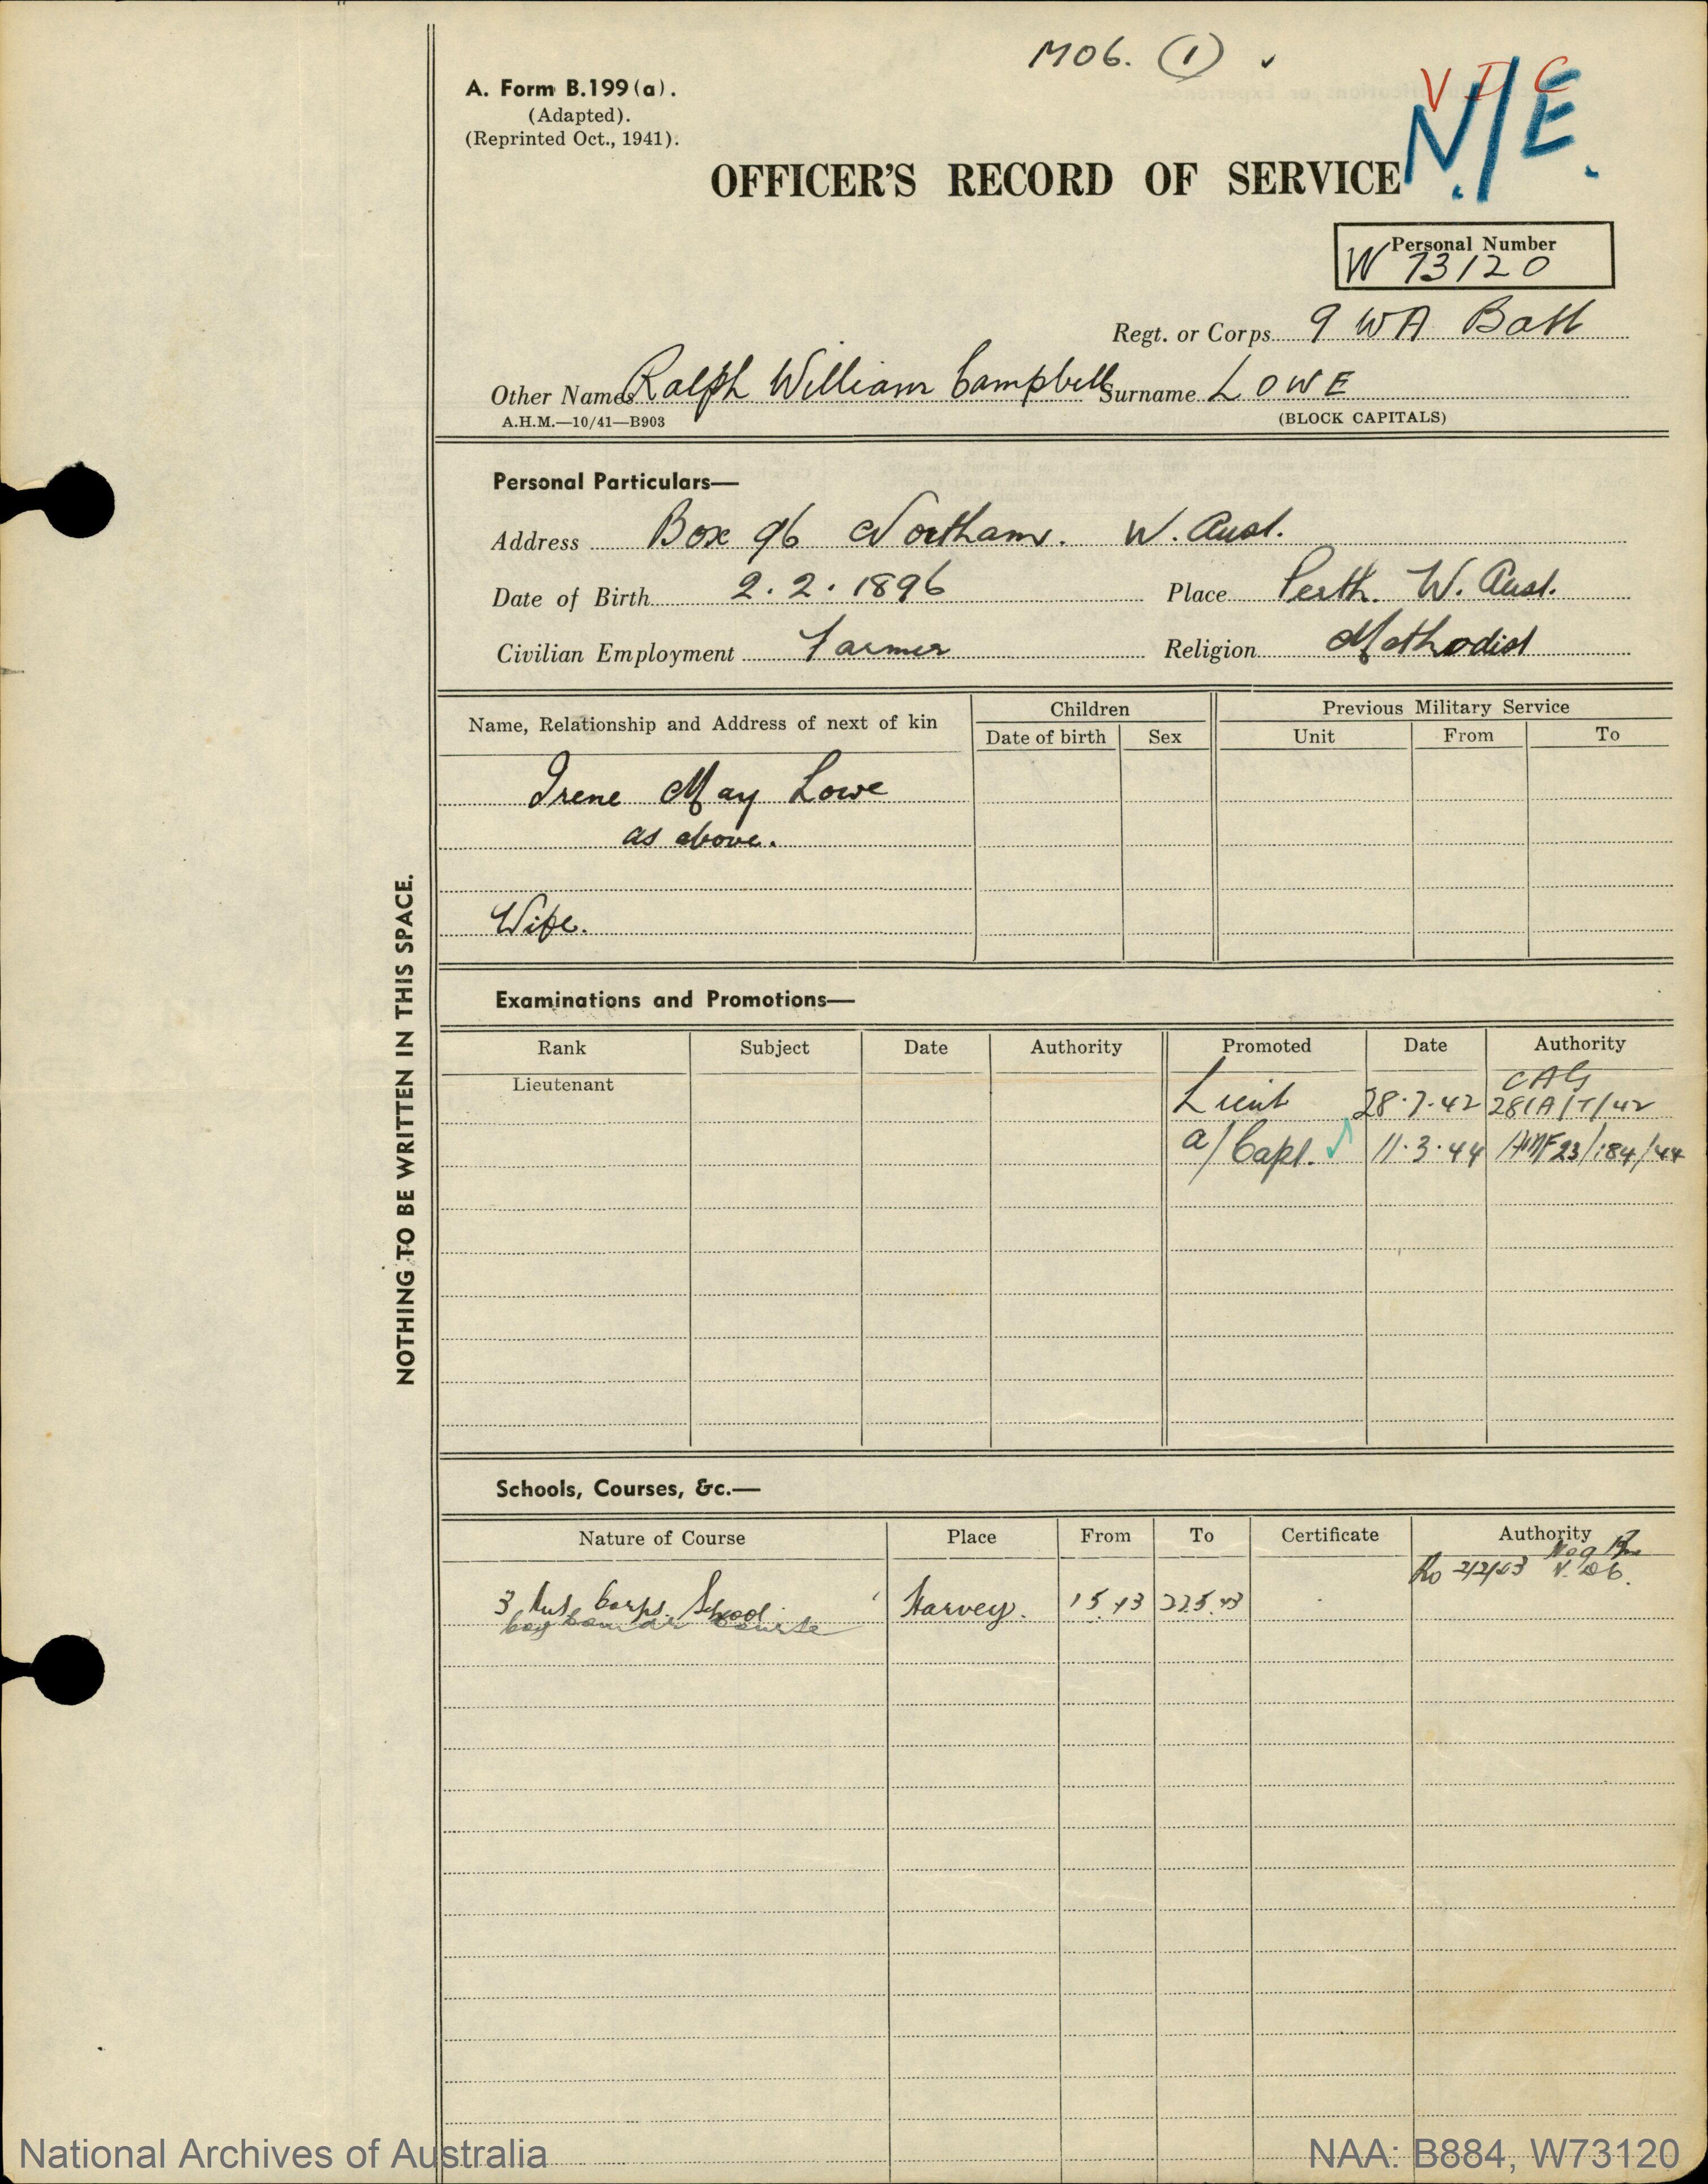 MOB. (1) ✓
V D C
N/E.
A. Form B.199 (a).
(Adapted).
(Reprinted Oct., 1941).
OFFICER'S RECORD OF SERVICE
Personal Number
W 73120
Regt. or Corps 9 WA Batt
Other Names Ralph William Campbell Surname LOWE
A.H.M.—10/41—B903 (BLOCK CAPITALS)
Personal Particulars—
Address Box 96 Northam. W. Aust.
Date of Birth 2.2.1896 Place Perth. W. Aust.
Civilian Employment Farmer Religion Methodist
Name, Relationship and Address of next of kin Children Previous Military Service
Date of birth Sex Unit From To
Irene May Lowe
as above.
Wife.
NOTHING TO BE WRITTEN IN THIS SPACE.
Examinations and Promotions—
Rank Subject Date Authority Promoted Date Authority
Lieutenant
Lieut 28.7.42 CAG
281A/T/42
a/Capt. ✓ 11.3.44 AMF23/184/44
Schools, Courses, &c.—
Nature of Course Place From To Certificate Authority
V.D.C.
3 Aust Corps. School Harvey. 1 5 43 22 5 43
Course
National Archives of Australia NAA: B884, W73120